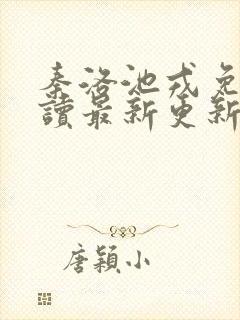 秦洛池戎免
讀最新更新
唐穎小